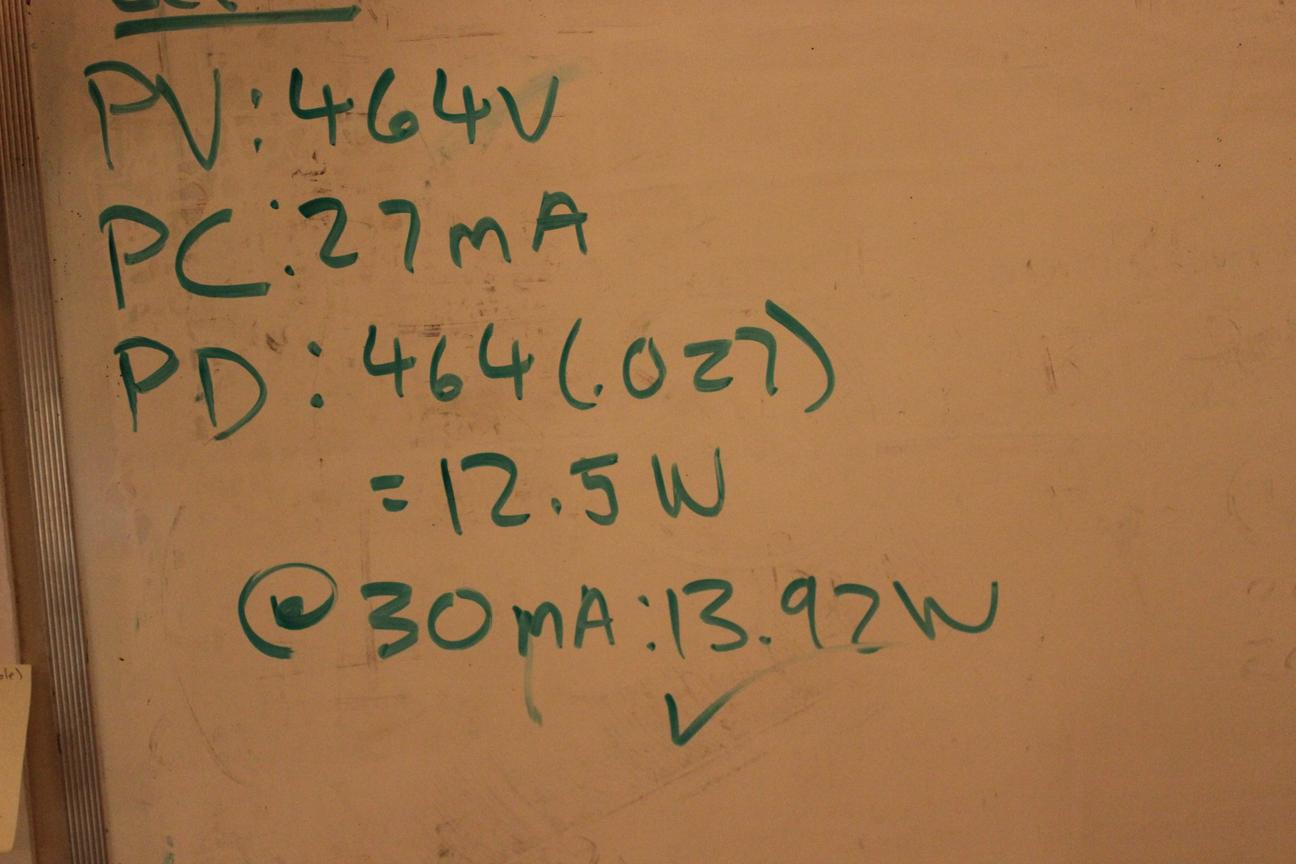 PV: 464V
PC: 27mA
PD: 464(.027)
= 12.5W
@ 30mA: 13.92W